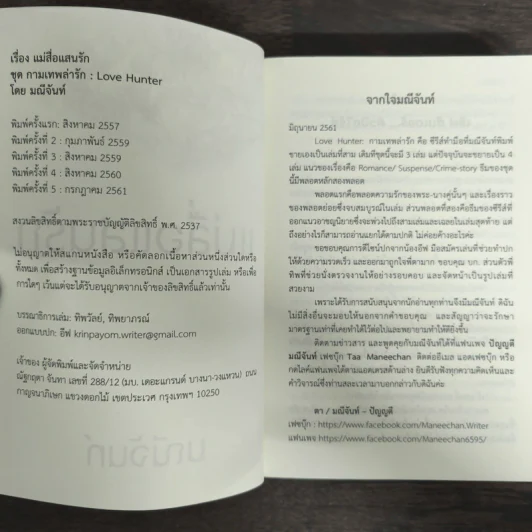 เรื่อง แม่สื่อแสนรัก
ชุด กามเทพล่ารัก : Love Hunter
โดย มณีจันท์
พิมพ์ครั้งแรก: สิงหาคม 2557
พิมพ์ครั้งที่ 2 : กุมภาพันธ์ 2559
พิมพ์ครั้งที่ 3 : สิงหาคม 2559
พิมพ์ครั้งที่ 4 : สิงหาคม 2560
พิมพ์ครั้งที่ 5 : กรกฎาคม 2561
สงวนลิขสิทธิ์ตามพระราชบัญญัติลิขสิทธิ์ พ.ศ. 2537
ไม่อนุญาตให้สแกนหนังสือ หรือคัดลอกเนื้อหาส่วนหนึ่งส่วนใดหรือ
ทั้งหมด เพื่อสร้างฐานข้อมูลอิเล็กทรอนิกส์ เป็นเอกสารรูปเล่ม หรือเพื่อ
การใดๆ เว้นแต่จะได้รับอนุญาตจากเจ้าของลิขสิทธิ์แล้วเท่านั้น
บรรณาธิการเล่ม: ทิพวัลย์, ทิพยาภรณ์
ออกแบบปก: อีฟ krinpayorn.writer@gmail.com
เจ้าของ ผู้จัดพิมพ์และจัดจำหน่าย
ณัฐกฤตา จันทา เลขที่ 288/12 (มบ. เดอะแกรนด์ บางนา-วงแหวน) ถนน
กาญจนาภิเษก แขวงดอกไม้ เขตประเวศ กรุงเทพฯ 10250
จากใจมณีจันท์
มิถุนายน 2561
Love Hunter: กามเทพล่ารัก คือ ซีรีส์ทำมือที่มณีจันท์พิมพ์
ขายเองเป็นเล่มที่สาม เดิมทีชุดนี้จะมี 3 เล่ม แต่ปัจจุบันจะขยายเป็น 4
เล่ม แนวของเรื่องคือ Romance/ Suspense/Crime-story ธีมของชุด
นี้มีพลอตหลักสองพลอต
พลอตแรกคือพลอตความรักของพระ-นางคู่นั้นๆ และเรื่องราว
ของพลอตย่อยซึ่งจบสมบูรณ์ในเล่ม ส่วนพลอตที่สองคือธีมของซีรีส์ที่
ออกแนวอาชญนิยายซึ่งจะพ่วงไปถึงสามเล่มและเฉลยในเล่มสุดท้าย แต่
ถึงอย่างไรก็สามารถอ่านแยกได้ตามปกติ ไม่ค่อยค้างอะไรค่ะ
ขอขอบคุณการดีไซน์ปกจากน้องอีฟ มือสมัครเล่นที่ช่วยทำปก
ให้ด้วยความรวดเร็ว และออกมาถูกใจพี่ตามาก ขอบคุณ บก. ส่วนตัวพี่
ทิพที่ช่วยนั่งตรวจงานให้อย่างรอบคอบ และจัดหน้าเป็นรูปเล่มที่
สวยงาม
เพราะได้รับการสนับสนุนจากนักอ่านทุกท่านจึงมีมณีจันท์ ดิฉัน
ไม่มีสิ่งอื่นจะมอบให้นอกจากคำขอบคุณ และสัญญาว่าจะรักษา
มาตรฐานเท่าที่เคยทำไว้ต่อไปและพยายามทำให้ดียิ่งขึ้น
ติดตามข่าวสาร และพูดคุยกับมณีจันท์ได้ที่แฟนเพจ ปัญญดี
มณีจันท์ เฟซบุ๊ก Taa Maneechan ติดต่ออีเมล แอดเฟซบุ๊ก หรือ
กดไลค์แฟนเพจได้ตามแอดเดรสด้านล่าง ยินดีรับฟังทุกความคิดเห็นและ
คำวิจารณ์ซึ่งท่านสละเวลามาบอกกล่าวกับดิฉันค่ะ
ตา / มณีจันท์ – ปัญญดี
เฟซบุ๊ก : https://www.facebook.com/Maneechan.Writer
แฟนเพจ https://www.facebook.com/Maneechan6595/
มณีจันท์